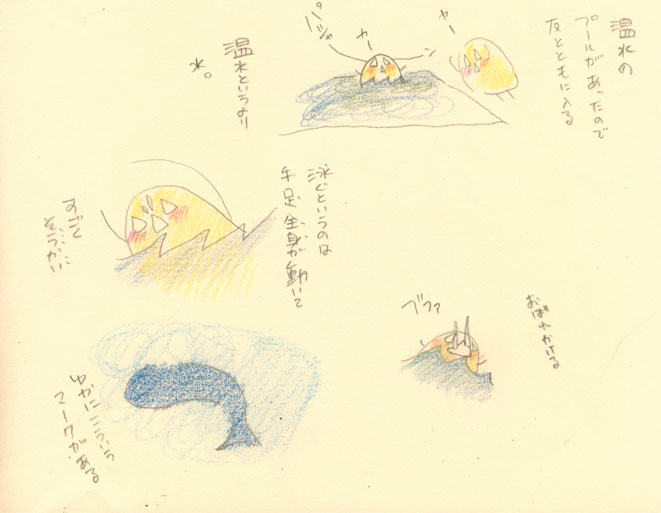 温水の
プールがあったので
友とともに入る
ヤー
ヤー
パシャ。
ン
温水というより
水。
泳ぐというのは
手足全身が動いて
すごく
そうかい
おぼれかける
ブファ
ゆかにこういう
マークがある